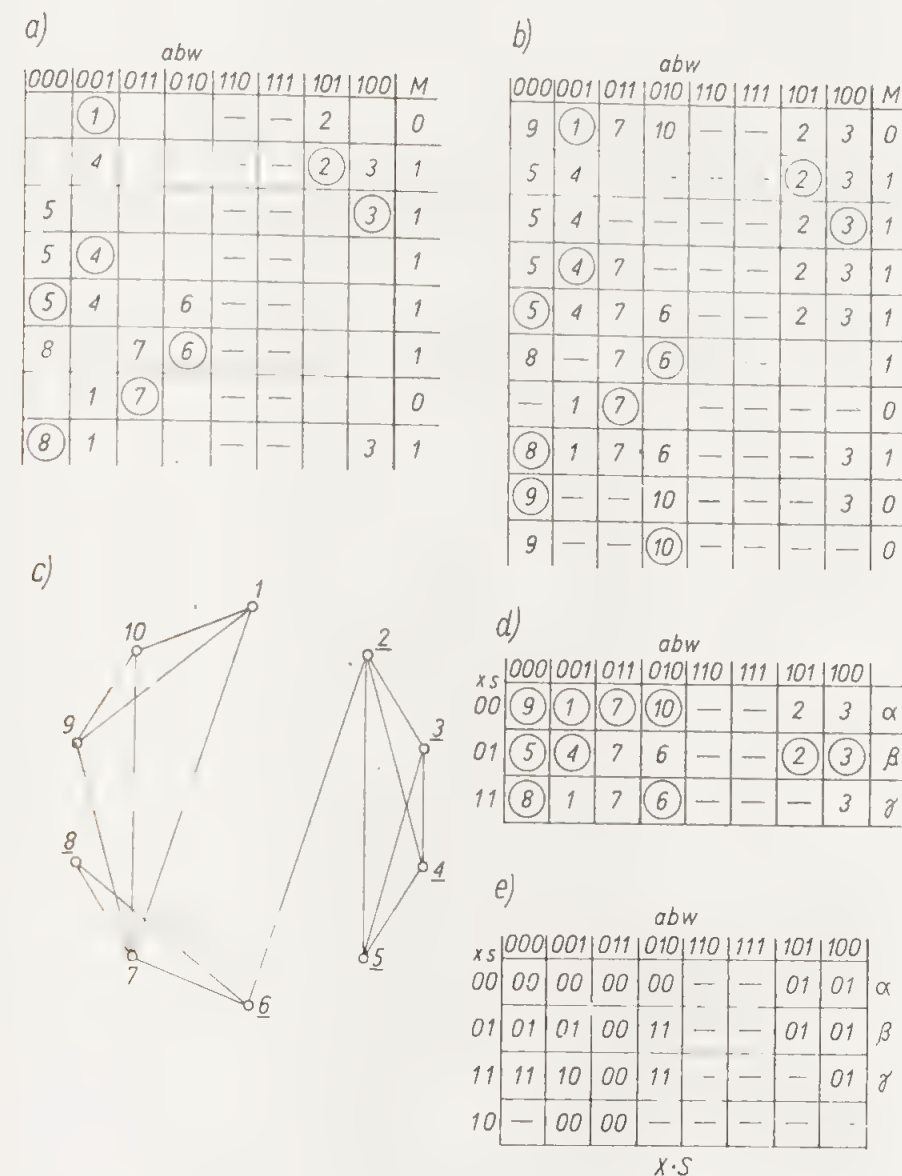 a)
abw
000 001 011 010 110 111 101 100 M
1 — — 2 0
4 - — 2 3 1
5 — — 3 1
5 4 — — 1
5 4 6 — — 1
8 7 6 — — 1
1 7 — — 0
8 1 — — 3 1
b)
abw
000 001 011 010 110 111 101 100 M
9 1 7 10 — — 2 3 0
5 4 2 3 1
5 4 — — — — 2 3 1
5 4 7 — — — 2 3 1
5 4 7 6 — — 2 3 1
8 — 7 6 — - 1
— 1 7 — — — — 0
8 1 7 6 — — — 3 1
9 — — 10 — — — 3 0
9 — — 10 — — — — 0
c)
1
10
2
9
3
8
4
7
5
6
d)
abw
xs 000 001 011 010 110 111 101 100
00 9 1 7 10 — — 2 3 α
01 5 4 7 6 — — 2 3 β
11 8 1 7 6 — — — 3 γ
e)
abw
xs 000 001 011 010 110 111 101 100
00 00 00 00 00 — — 01 01 α
01 01 01 00 11 — — 01 01 β
11 11 10 00 11 — — — 01 γ
10 — 00 00 — — — — -
X·S